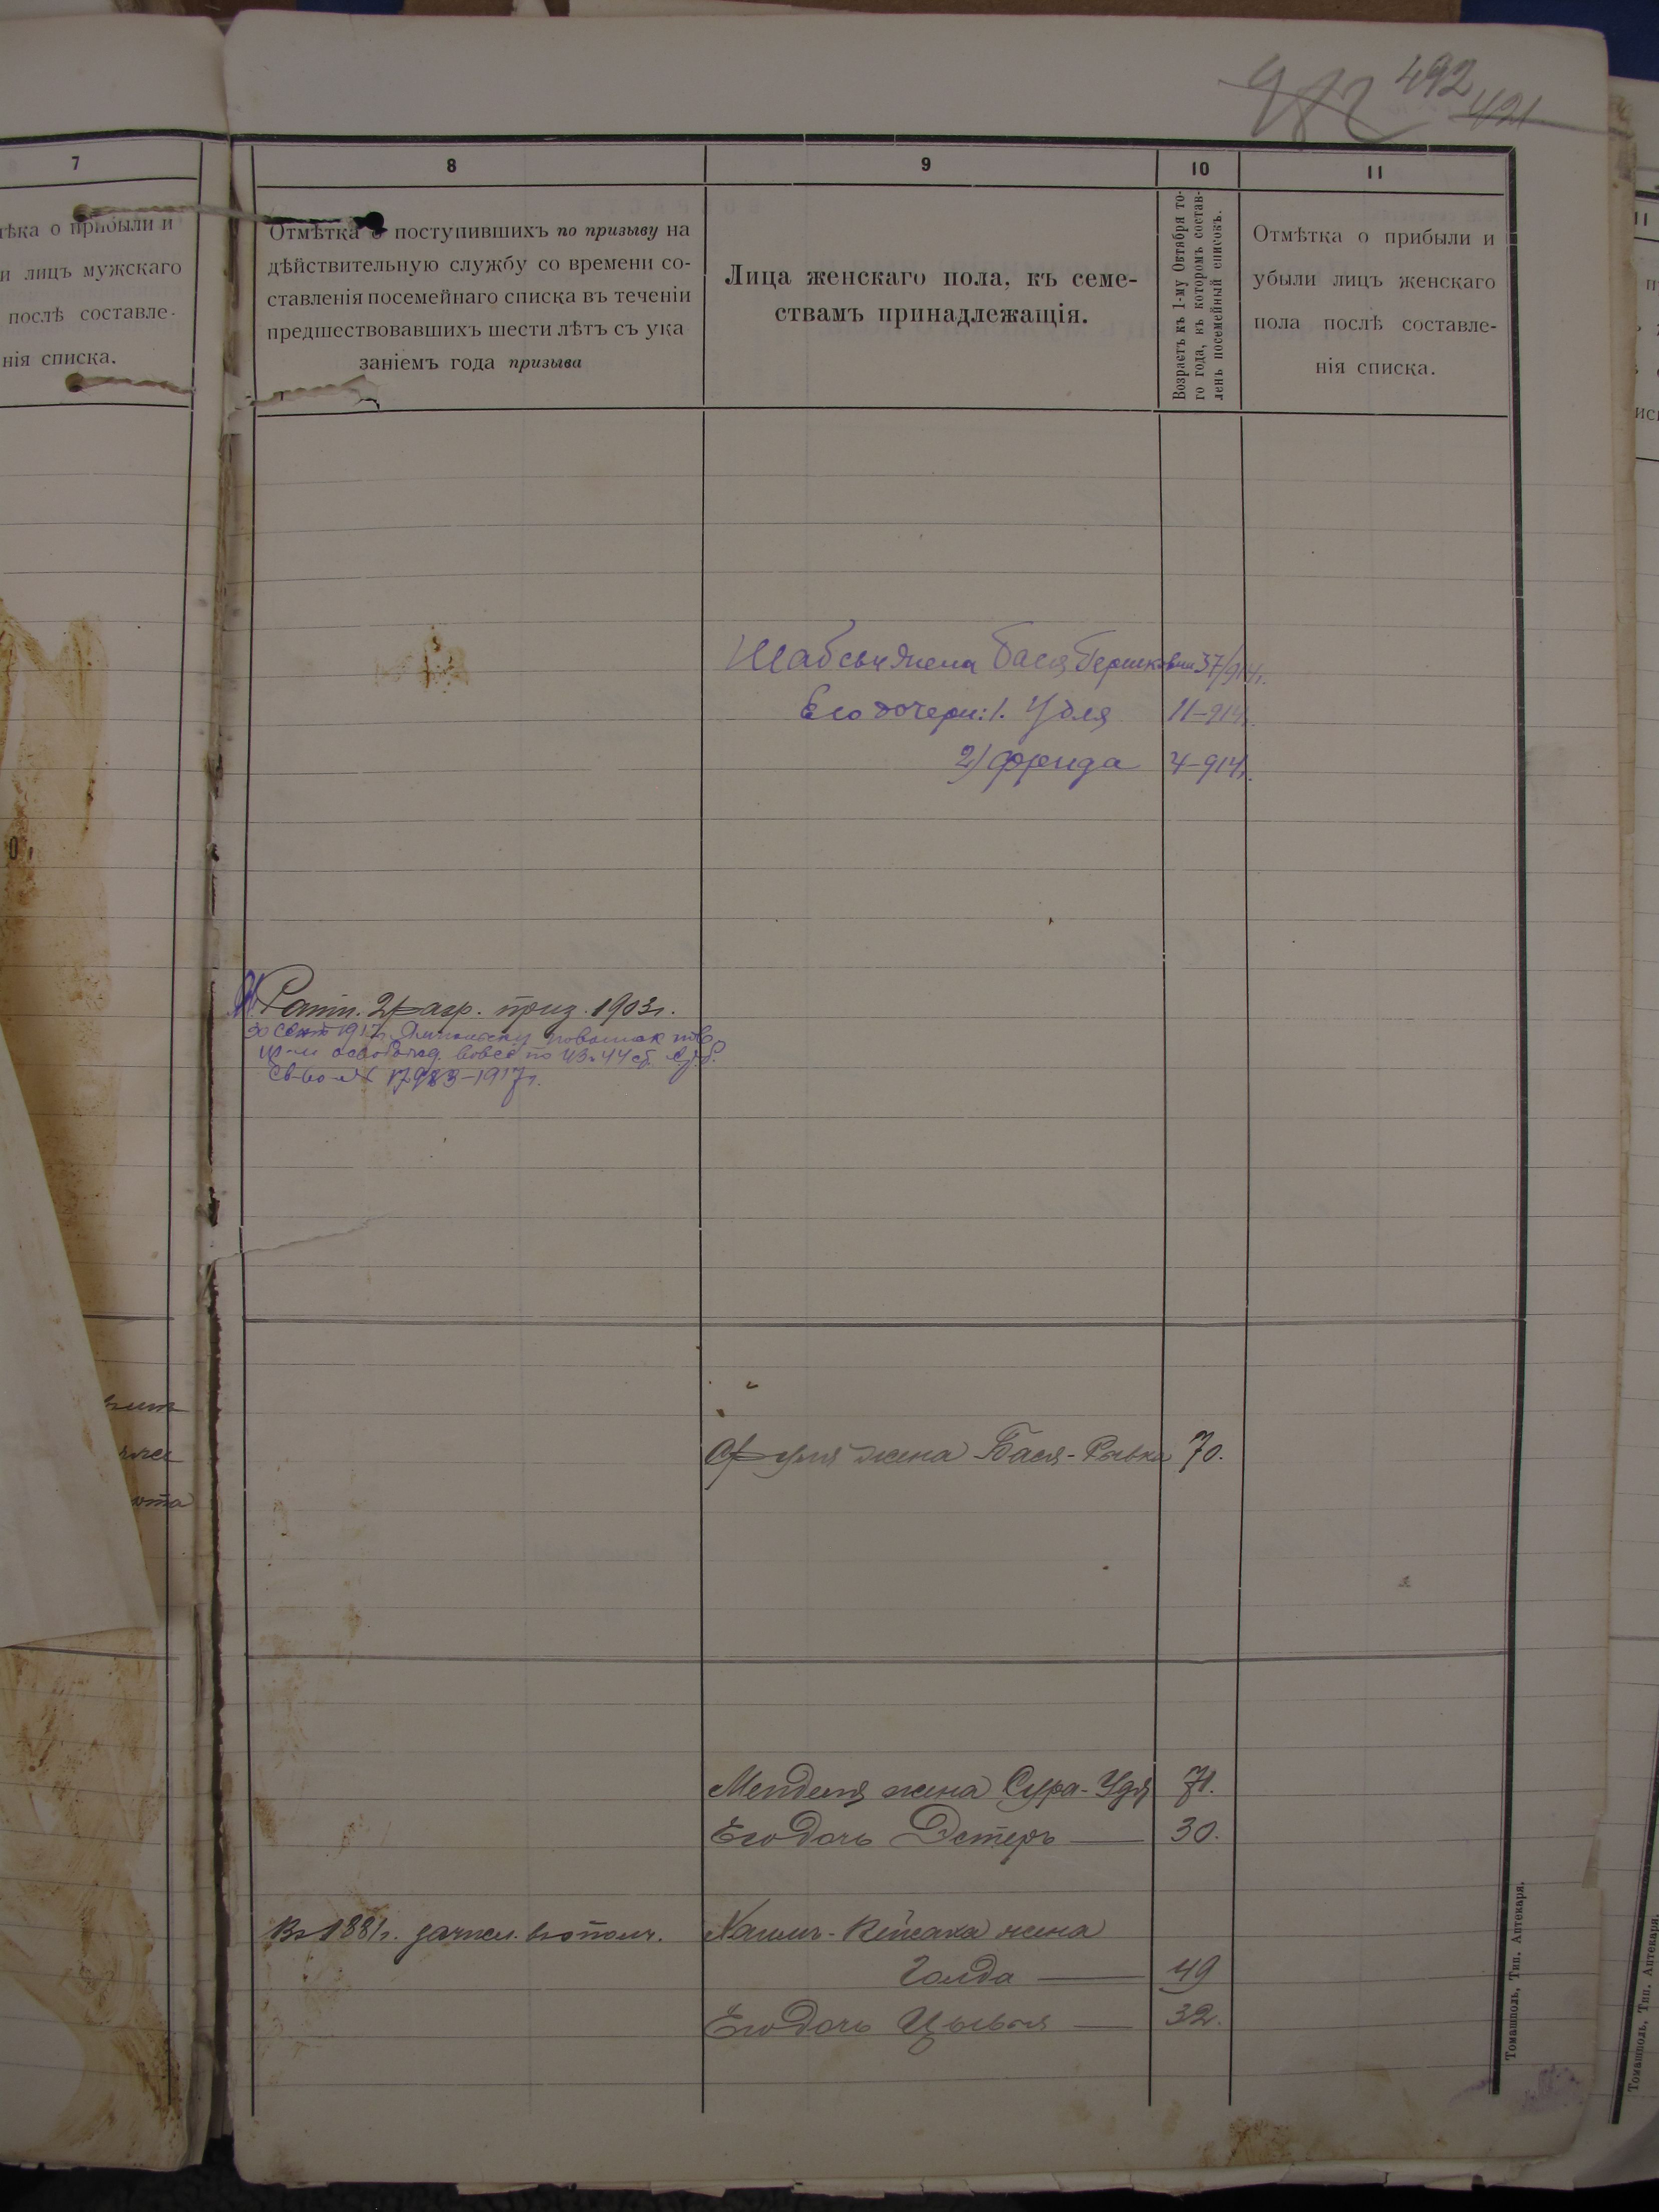 492
482 491
7
тѣка о прибыли и
и лицъ мужскаго
послѣ составле-
нія списка.
8
Отмѣтка о поступившихъ по призыву на
дѣйствительную службу со времени со-
ставленія посемейнаго списка въ теченіи
предшествовавшихъ шести лѣтъ съ ука
заніемъ года призыва
9
Лица женскаго пола, къ семе-
ствамъ принадлежащія.
10
Возрастъ къ 1-му Октября то-
го года, къ которомъ состав-
ленъ посемейный списокъ.
11
Отмѣтка о прибыли и
убыли лицъ женскаго
пола послѣ составле-
нія списка.
Шабсы жена Бася Гершковна 37/914г.
Его дочери: 1. Удля 11-914г.
2) Фрида 4-914г.
Ратн. 2 разр. приз. 1903г.
30 сент 1917г.
освобожд. вовсе по
Св-во № 17983-1917г.
жена Бася-Рывка 70.
Менделя жена Сура-Удя 71.
Его дочь Эстеръ 30.
Въ 1881г. зачисл. въ ополч.
Хаимъ- жена
Голда 49
Его дочь Цывья 32.
Томашполь, Тип. Аптекаря.
Томашполь, Тип. Аптекаря.